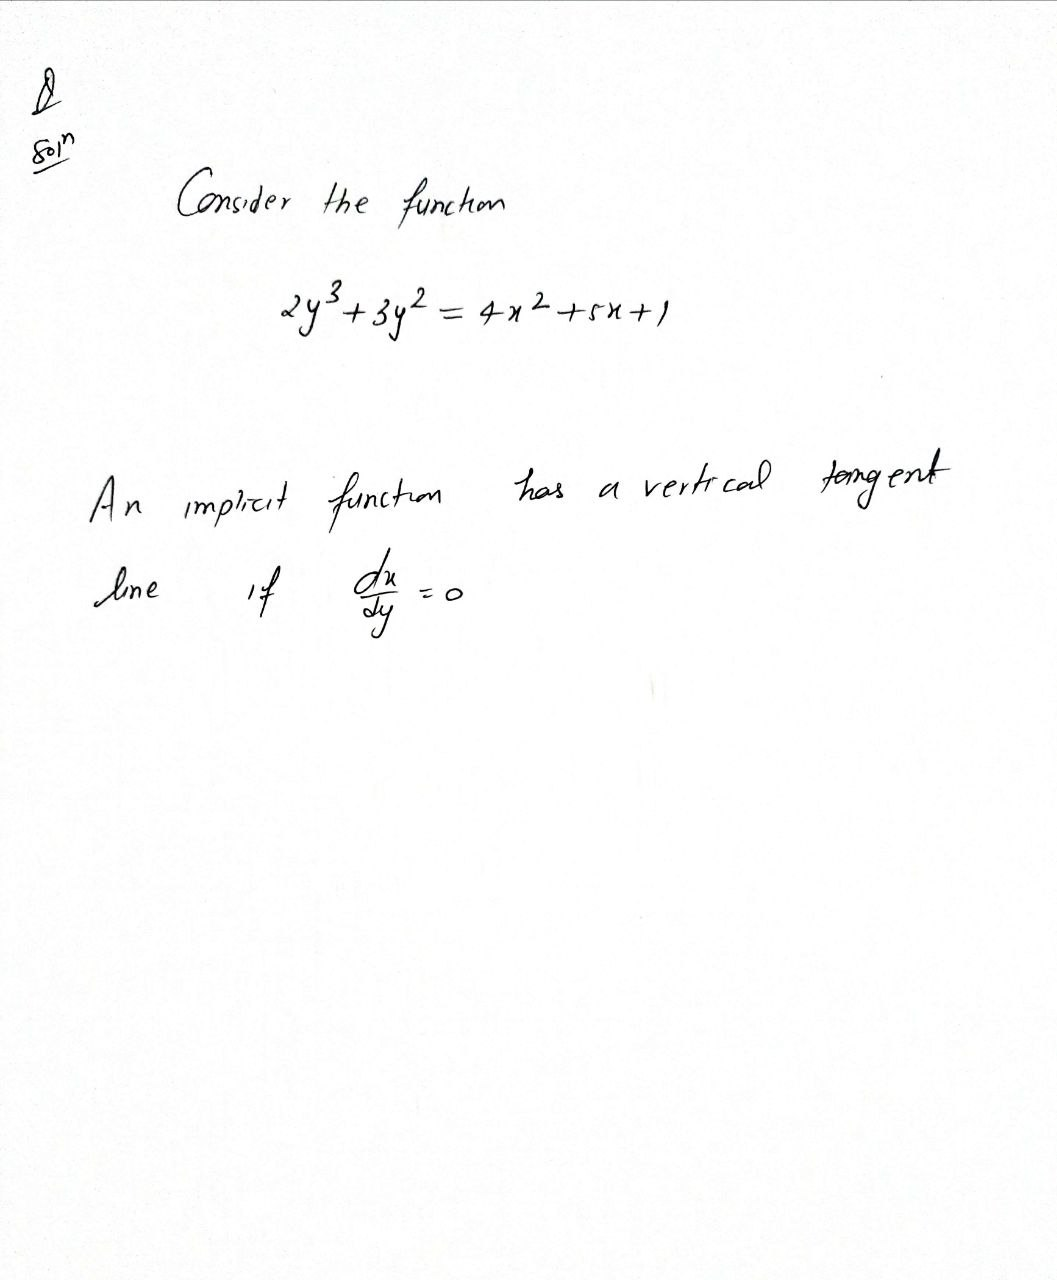 Q
Solⁿ
Consider the function
2y³ + 3y² = 4x² + 5x + 1
An implicit function has a vertical tangent
line if dx/dy = 0